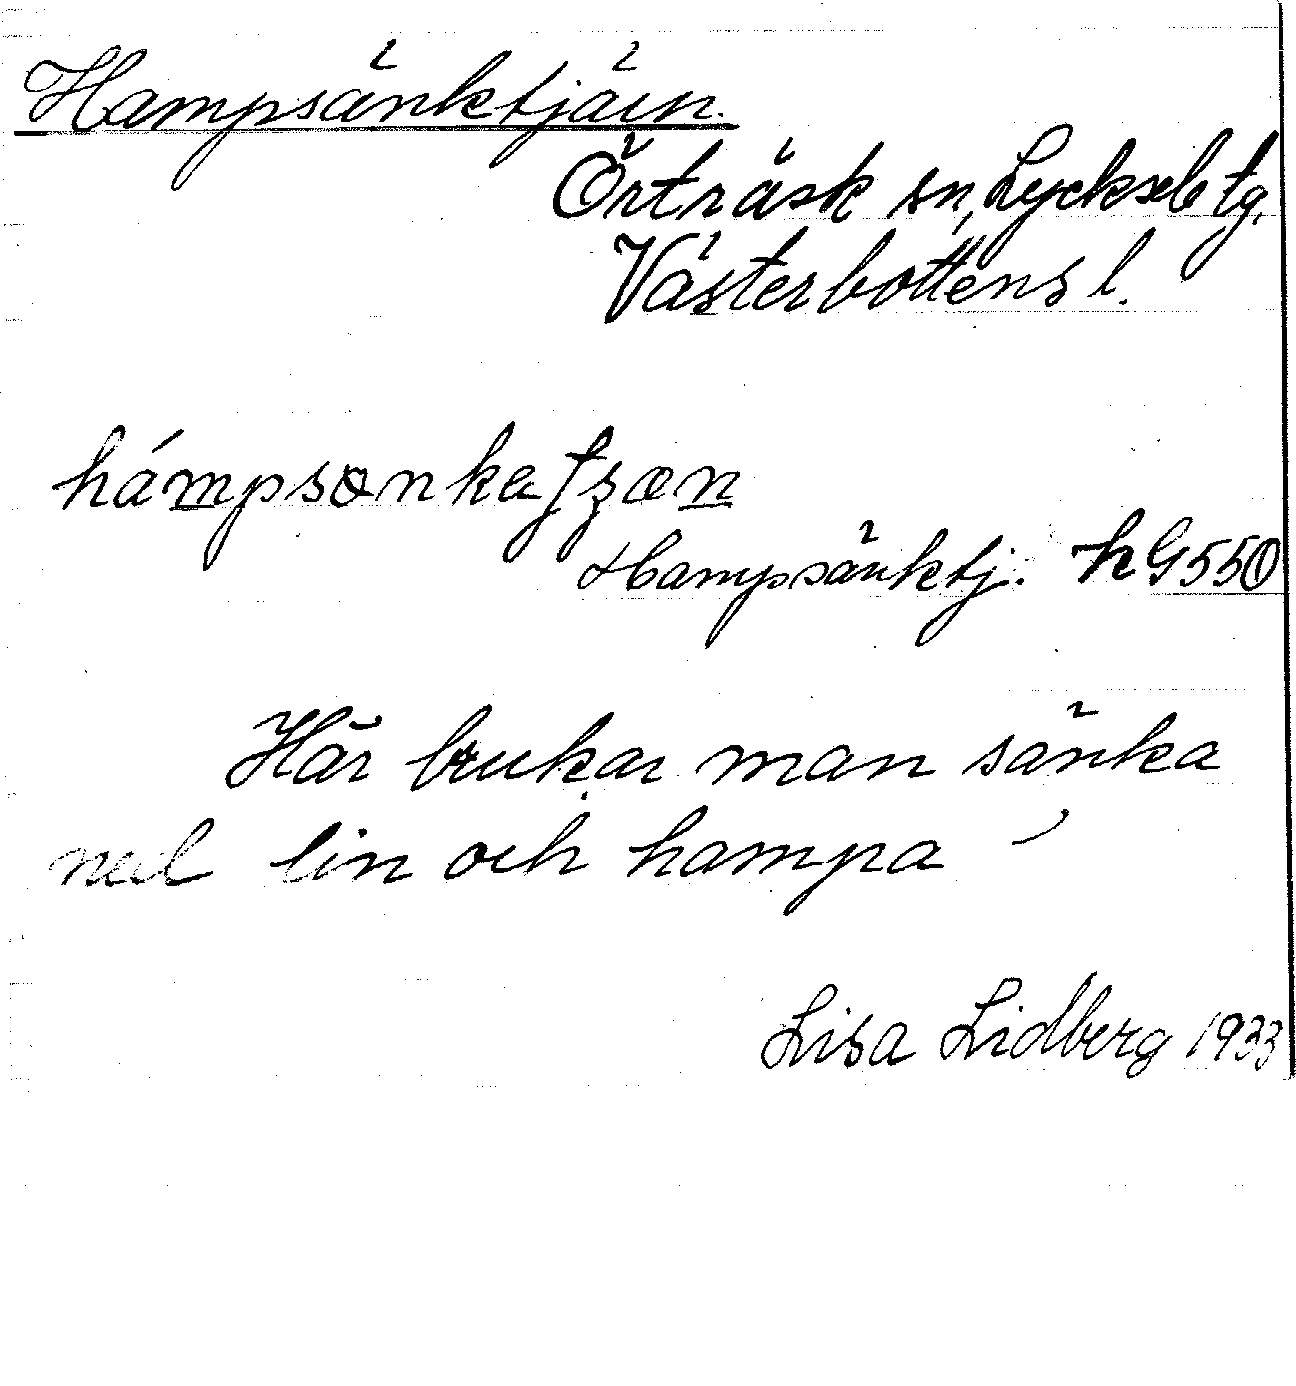 Hampsänktjärn.
Örträsk sn, Lycksele tg.
Västerbottens l.
Hampsänktj. hG550
Här brukar man sänka
ned lin och hampa
Lisa Lidberg 1933